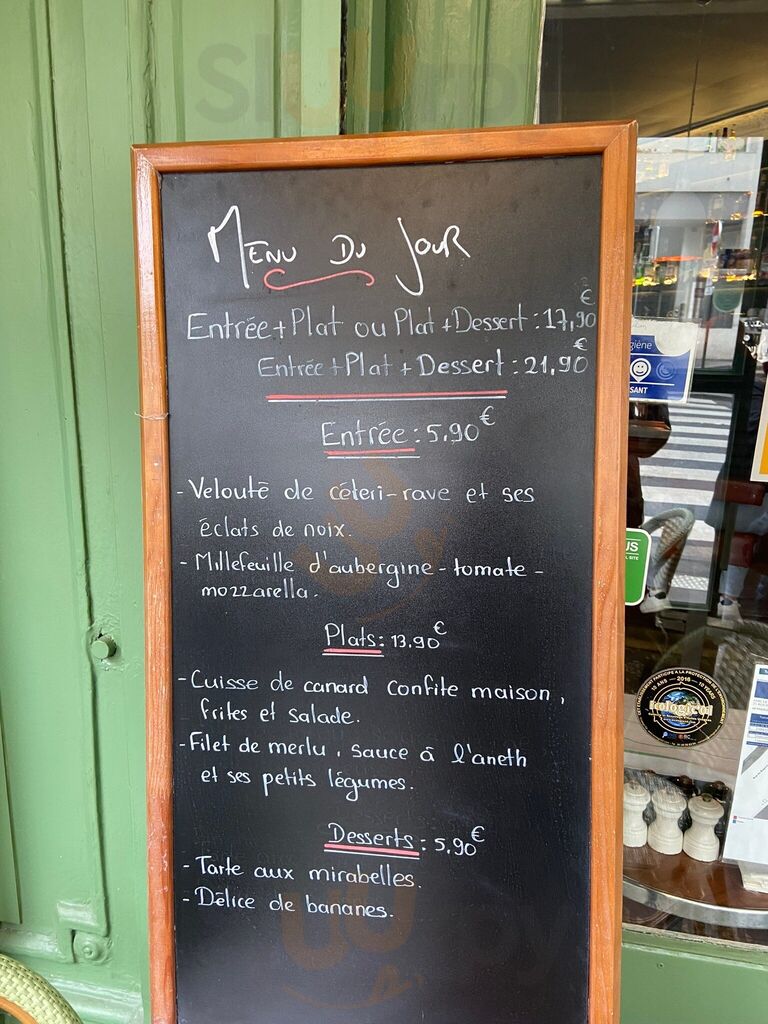 Sluurpy
MENU DU JOUR
Entrée+Plat ou Plat+Dessert : 17,90 €
Entrée+Plat+Dessert : 21,90 €
Entrée : 5.90 €
- Velouté de céleri-rave et ses
éclats de noix.
- Millefeuille d'aubergine - tomate -
mozzarella.
Plats : 13.90 €
- Cuisse de canard confite maison,
frites et salade.
- Filet de merlu, sauce à l'aneth
et ses petits légumes.
Desserts : 5,90 €
- Tarte aux mirabelles.
- Délice de bananes.
giène
SANT
US
10 ANS - 2016 - 10 YEARS